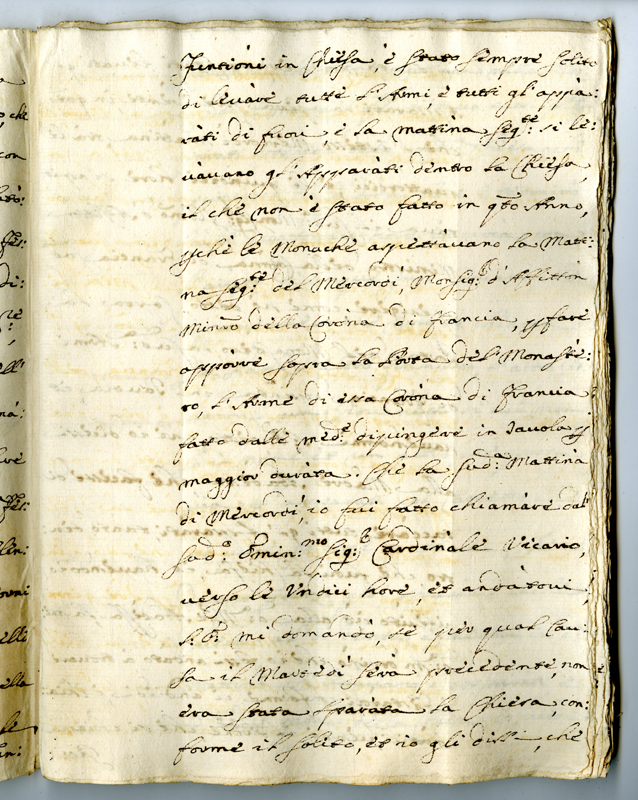 Funtioni in Chiesa, è stato sempre solito
di levare tutte l'Armi, e tutti gl'appa:
rati di fuori, e la mattina seg.te si le:
vavano gl'Apparati dentro la Chiesa,
il che non è stato fatto in q.to Anno,
p che le Monache aspettavano la Matt:
na seg.te del Mercordi, Monsig.r d'
Minro della Corona di Francia, p fare
apporre sopra la Porta del Monaste:
ro, l'Arme di essa Corona di Francia
fatto dalle med.e dipingere in Tavola p
maggior durata. Che la sud.a Mattina
di Mercordi, io fui fatto chiamare dal
sud.o Emin:mo Sig.r Cardinale Vicario,
verso le Undici hore, et andatovi,
S. E. mi domandò, se per qual Cau:
sa il Martedi sera precedente, non
era stata sparata la Chiesa, con:
forme il solito, et io gli dissi, che